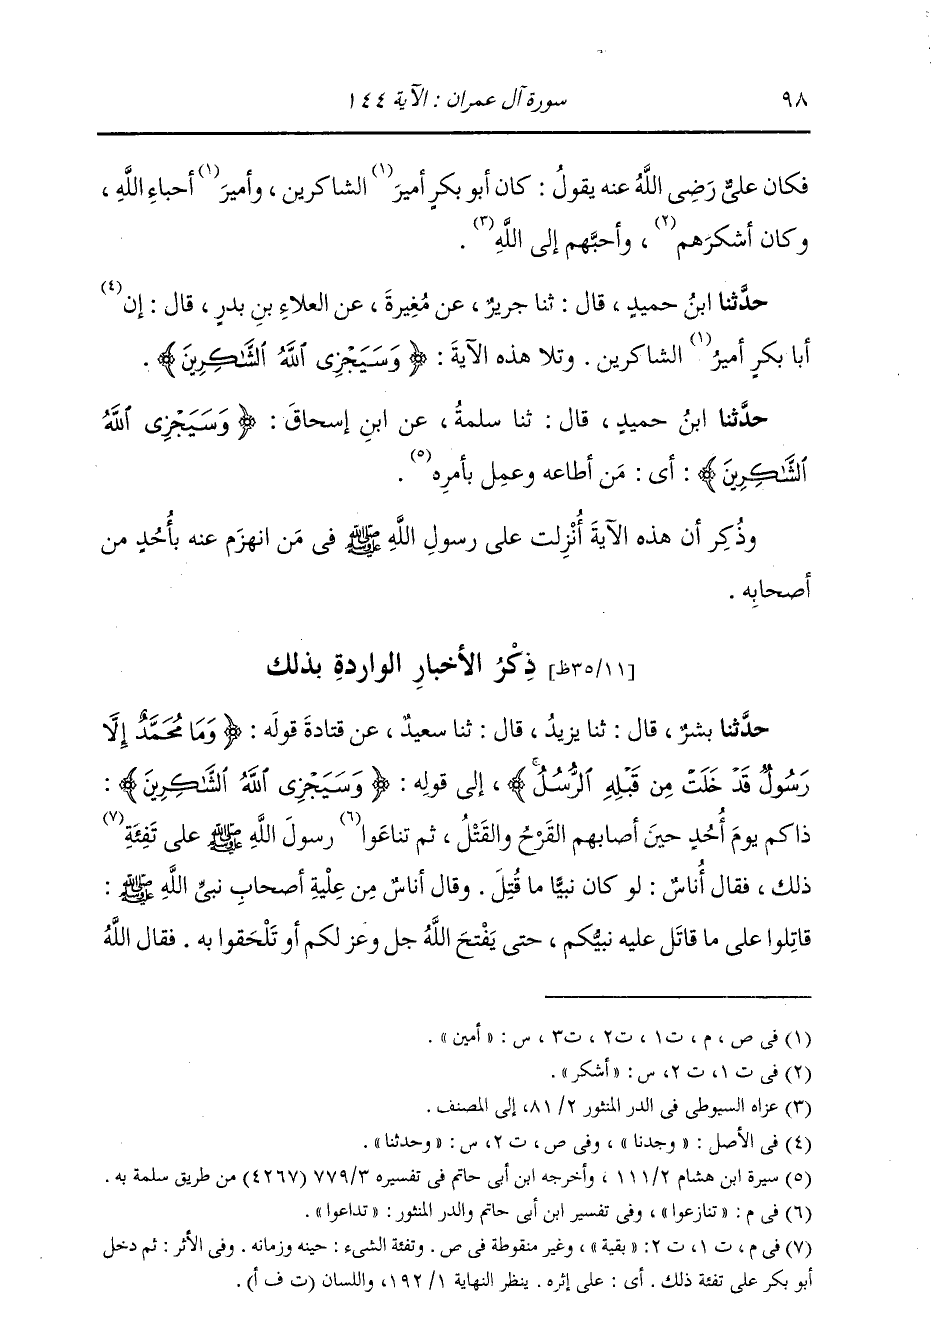 ٩٨ سورة آل عمران : الآية ١٤٤
فكان علىٌّ رَضِى اللَّهُ عنه يقولُ : كان أبو بكرٍ أميرَ(١) الشاكرين ، وأميرَ(١) أحباءِ اللَّهِ ،
وكان أشكرَهم(٢) ، وأحبَّهم إلى اللَّهِ(٣) .
حدَّثنا ابنُ حميدٍ ، قال : ثنا جريرٌ ، عن مُغِيرةَ ، عن العلاءِ بنِ بدرٍ ، قال : إن(٤)
أبا بكرٍ أميرُ(١) الشاكرين . وتلا هذه الآيةَ : ﴿ وَسَيَجْزِى ٱللَّهُ ٱلشَّـٰكِرِينَ ﴾ .
حدَّثنا ابنُ حميدٍ ، قال : ثنا سلمةُ ، عن ابنِ إسحاقَ : ﴿ وَسَيَجْزِى ٱللَّهُ
ٱلشَّـٰكِرِينَ ﴾ : أى : مَن أطاعه وعمِل بأمرِه(٥) .
وذُكِر أن هذه الآيةَ أُنْزِلت على رسولِ اللَّهِ ﷺ فى مَن انهزَم عنه بأُحُدٍ من
أصحابِه .
[٣٥/١١ظ] ذِكْرُ الأخبارِ الواردةِ بذلك
حدَّثنا بشرٌ ، قال : ثنا يزيدُ ، قال : ثنا سعيدٌ ، عن قتادةَ قولَه : ﴿ وَمَا مُحَمَّدٌ إِلَّا
رَسُولٌ قَدْ خَلَتْ مِن قَبْلِهِ ٱلرُّسُلُ ﴾ ، إلى قولِه : ﴿ وَسَيَجْزِى ٱللَّهُ ٱلشَّـٰكِرِينَ ﴾ :
ذاكم يومَ أُحُدٍ حينَ أصابهم القَرْحُ والقَتْلُ ، ثم تناعَوا(٦) رسولَ اللَّهِ ﷺ على تَفِئَةِ(٧)
ذلك ، فقال أُناسٌ : لو كان نبيًّا ما قُتِلَ . وقال أناسٌ مِن عِلْيةِ أصحابِ نبىِّ اللَّهِ ﷺ :
قاتِلوا على ما قاتَل عليه نبيُّكم ، حتى يَفْتحَ اللَّهُ جل وعز لكم أو تَلْحَقوا به . فقال اللَّهُ
(١) فى ص ، م ، ت١ ، ت٢ ، ت٣ ، س : « أمين » .
(٢) فى ت ١، ت ٢، س : « أشكر » .
(٣) عزاه السيوطى فى الدر المنثور ٢/ ٨١، إلى المصنف .
(٤) فى الأصل : « وجدنا » ، وفى ص ، ت ٢، س : « وحدثنا » .
(٥) سيرة ابن هشام ١١١/٢ ، وأخرجه ابن أبى حاتم فى تفسيره ٧٧٩/٣ (٤٢٦٧) من طريق سلمة به .
(٦) فى م : « تنازعوا » ، وفى تفسير ابن أبى حاتم والدر المنثور : « تداعوا » .
(٧) فى م ، ت ١، ت ٢: « بقية » ، وغير منقوطة فى ص . وتفئة الشىء : حينه وزمانه . وفى الأثر : ثم دخل
أبو بكر على تفئة ذلك . أى : على إثره . ينظر النهاية ١/ ١٩٢، واللسان (ت ف أ) .